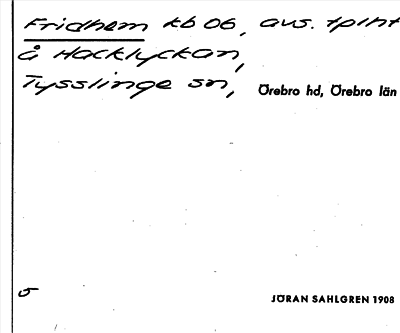 Fridhem kb 06, avs. tplht
å Hacklyckan,
Tysslinge sn, Örebro hd, Örebro län
5
JÖRAN SAHLGREN 1908